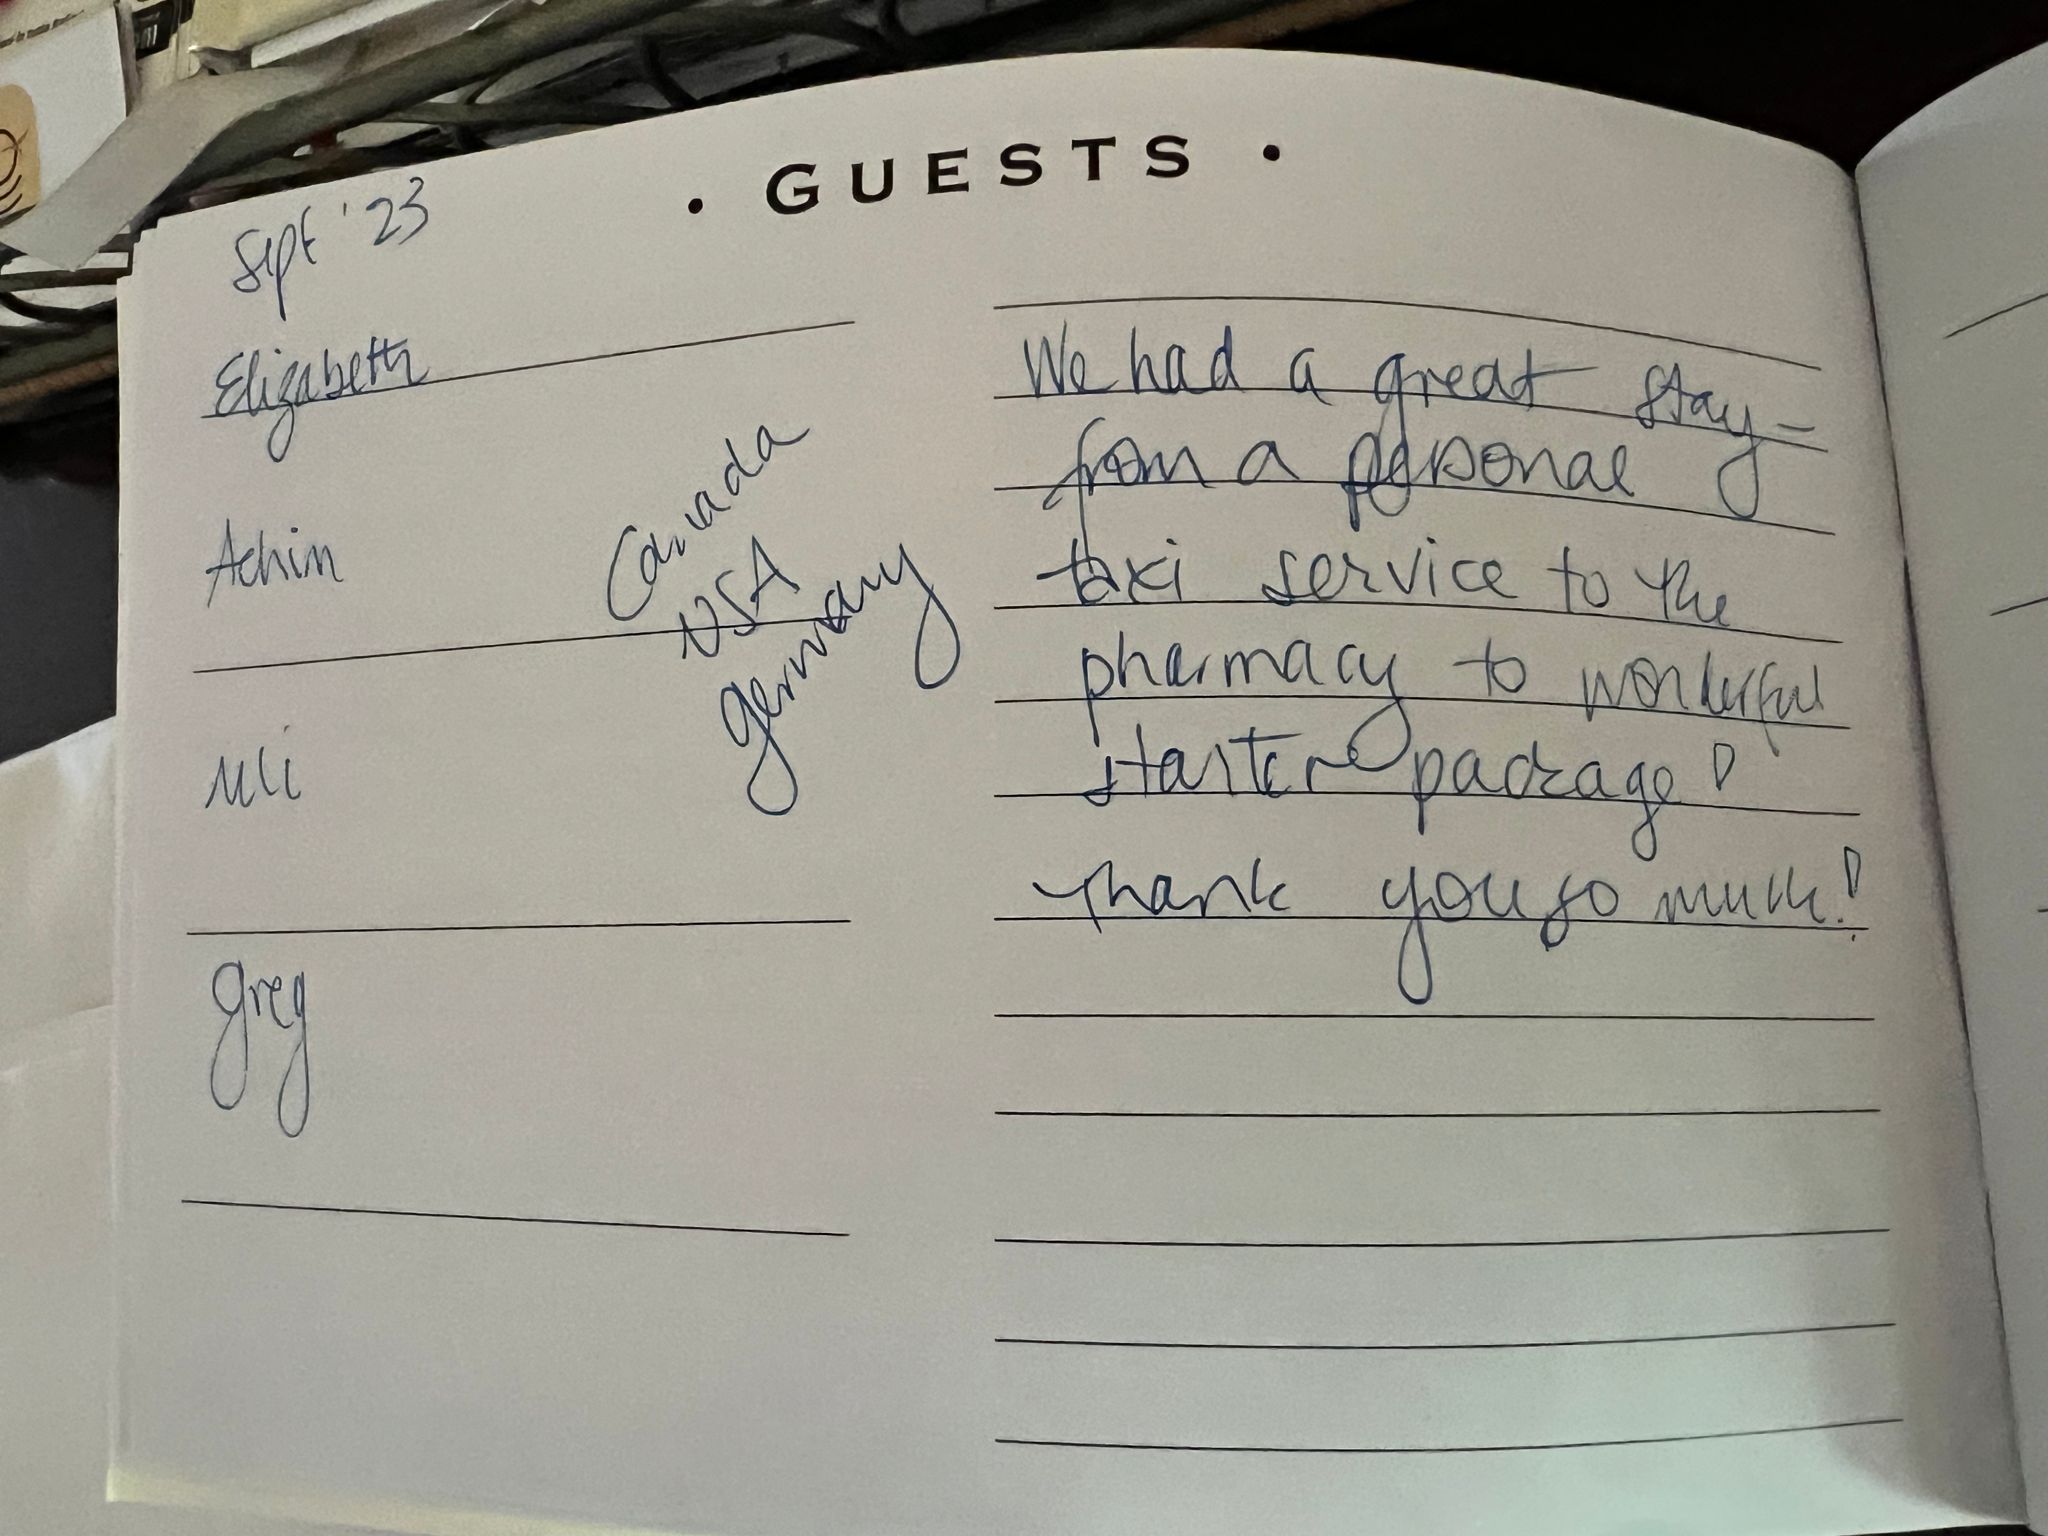 • GUESTS •
Sept '23
Elizabeth
Achim
Uli
Greg
Canada
USA
Germany
We had a great stay –
from a personal
taxi service to the
pharmacy to wonderful
starter package!
Thank you so much!